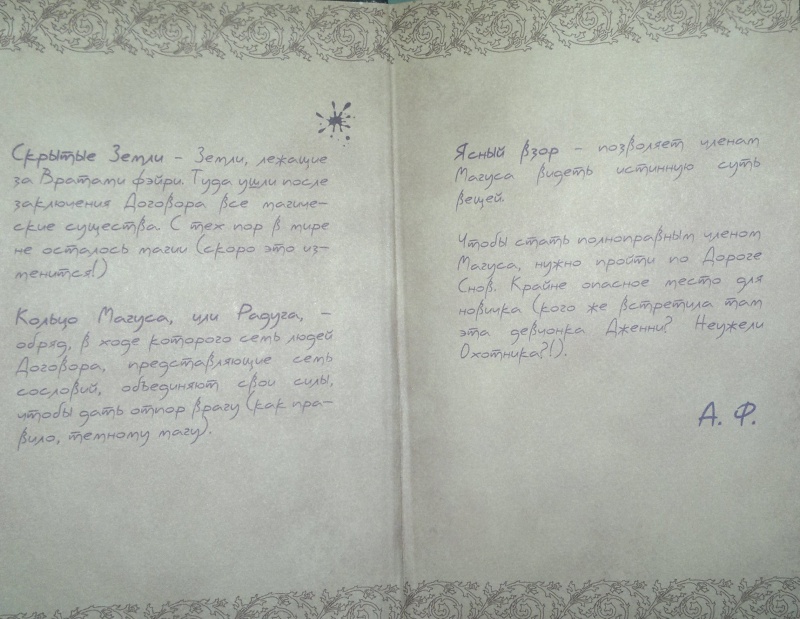 Скрытые Земли – Земли, лежащие
за Вратами фэйри. Туда ушли после
заключения Договора все магиче-
ские существа. С тех пор в мире
не осталось магии (скоро это из-
менится!)
Кольцо Магуса, или Радуга, –
обряд, в ходе которого семь людей
Договора, представляющие семь
сословий, объединяют свои силы,
чтобы дать отпор врагу (как пра-
вило, темному магу).
Ясный взор – позволяет членам
Магуса видеть истинную суть
вещей.
Чтобы стать полноправным членом
Магуса, нужно пройти по Дороге
Снов. Крайне опасное место для
новичка (кого же встретила там
эта девчонка Дженни? Неужели
Охотника?!).
А. Ф.